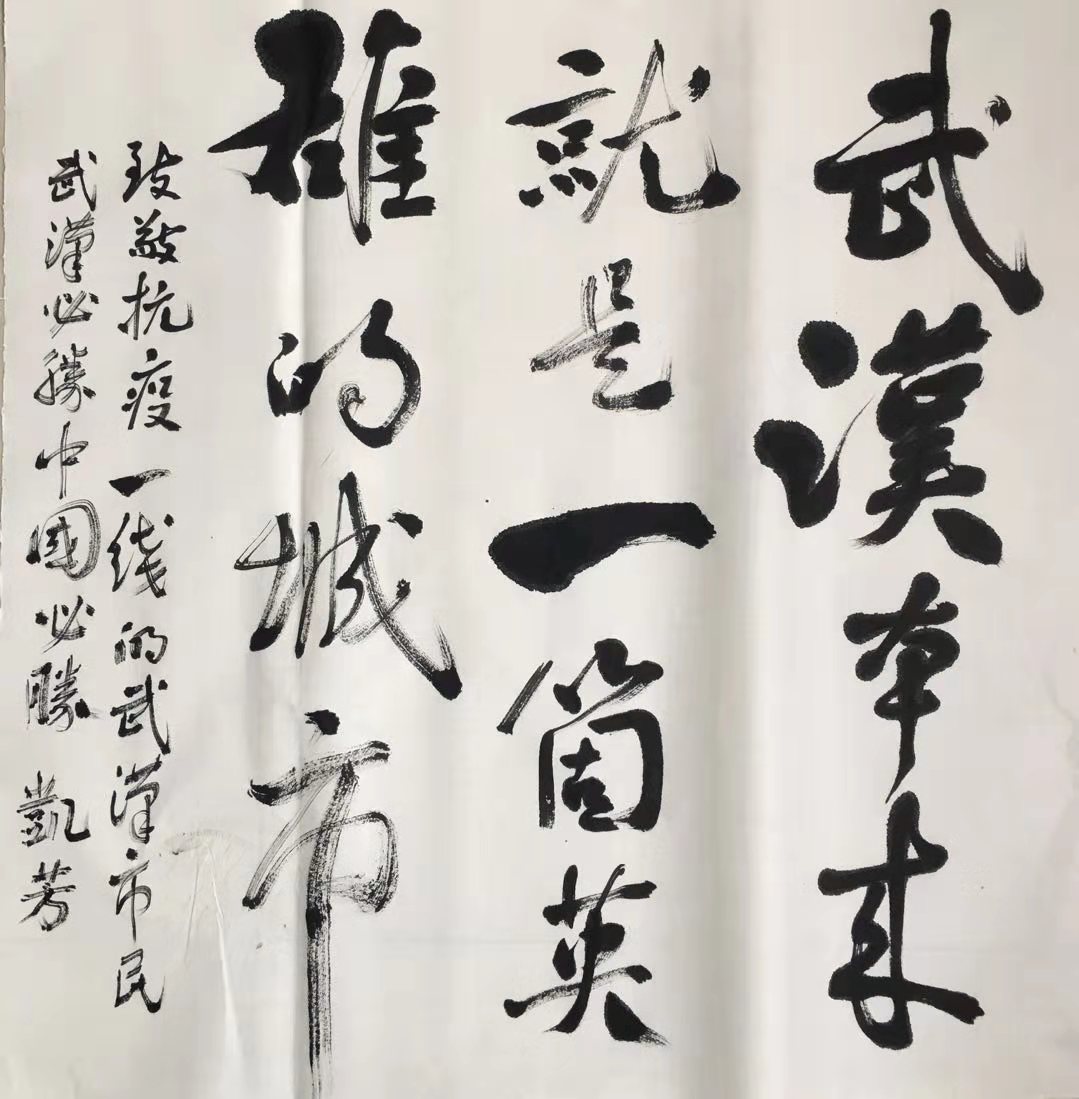 武漢本来
就是一箇英
雄的城市
致敬抗疫一线的武漢市民
武漢必勝中國必勝 凱芳